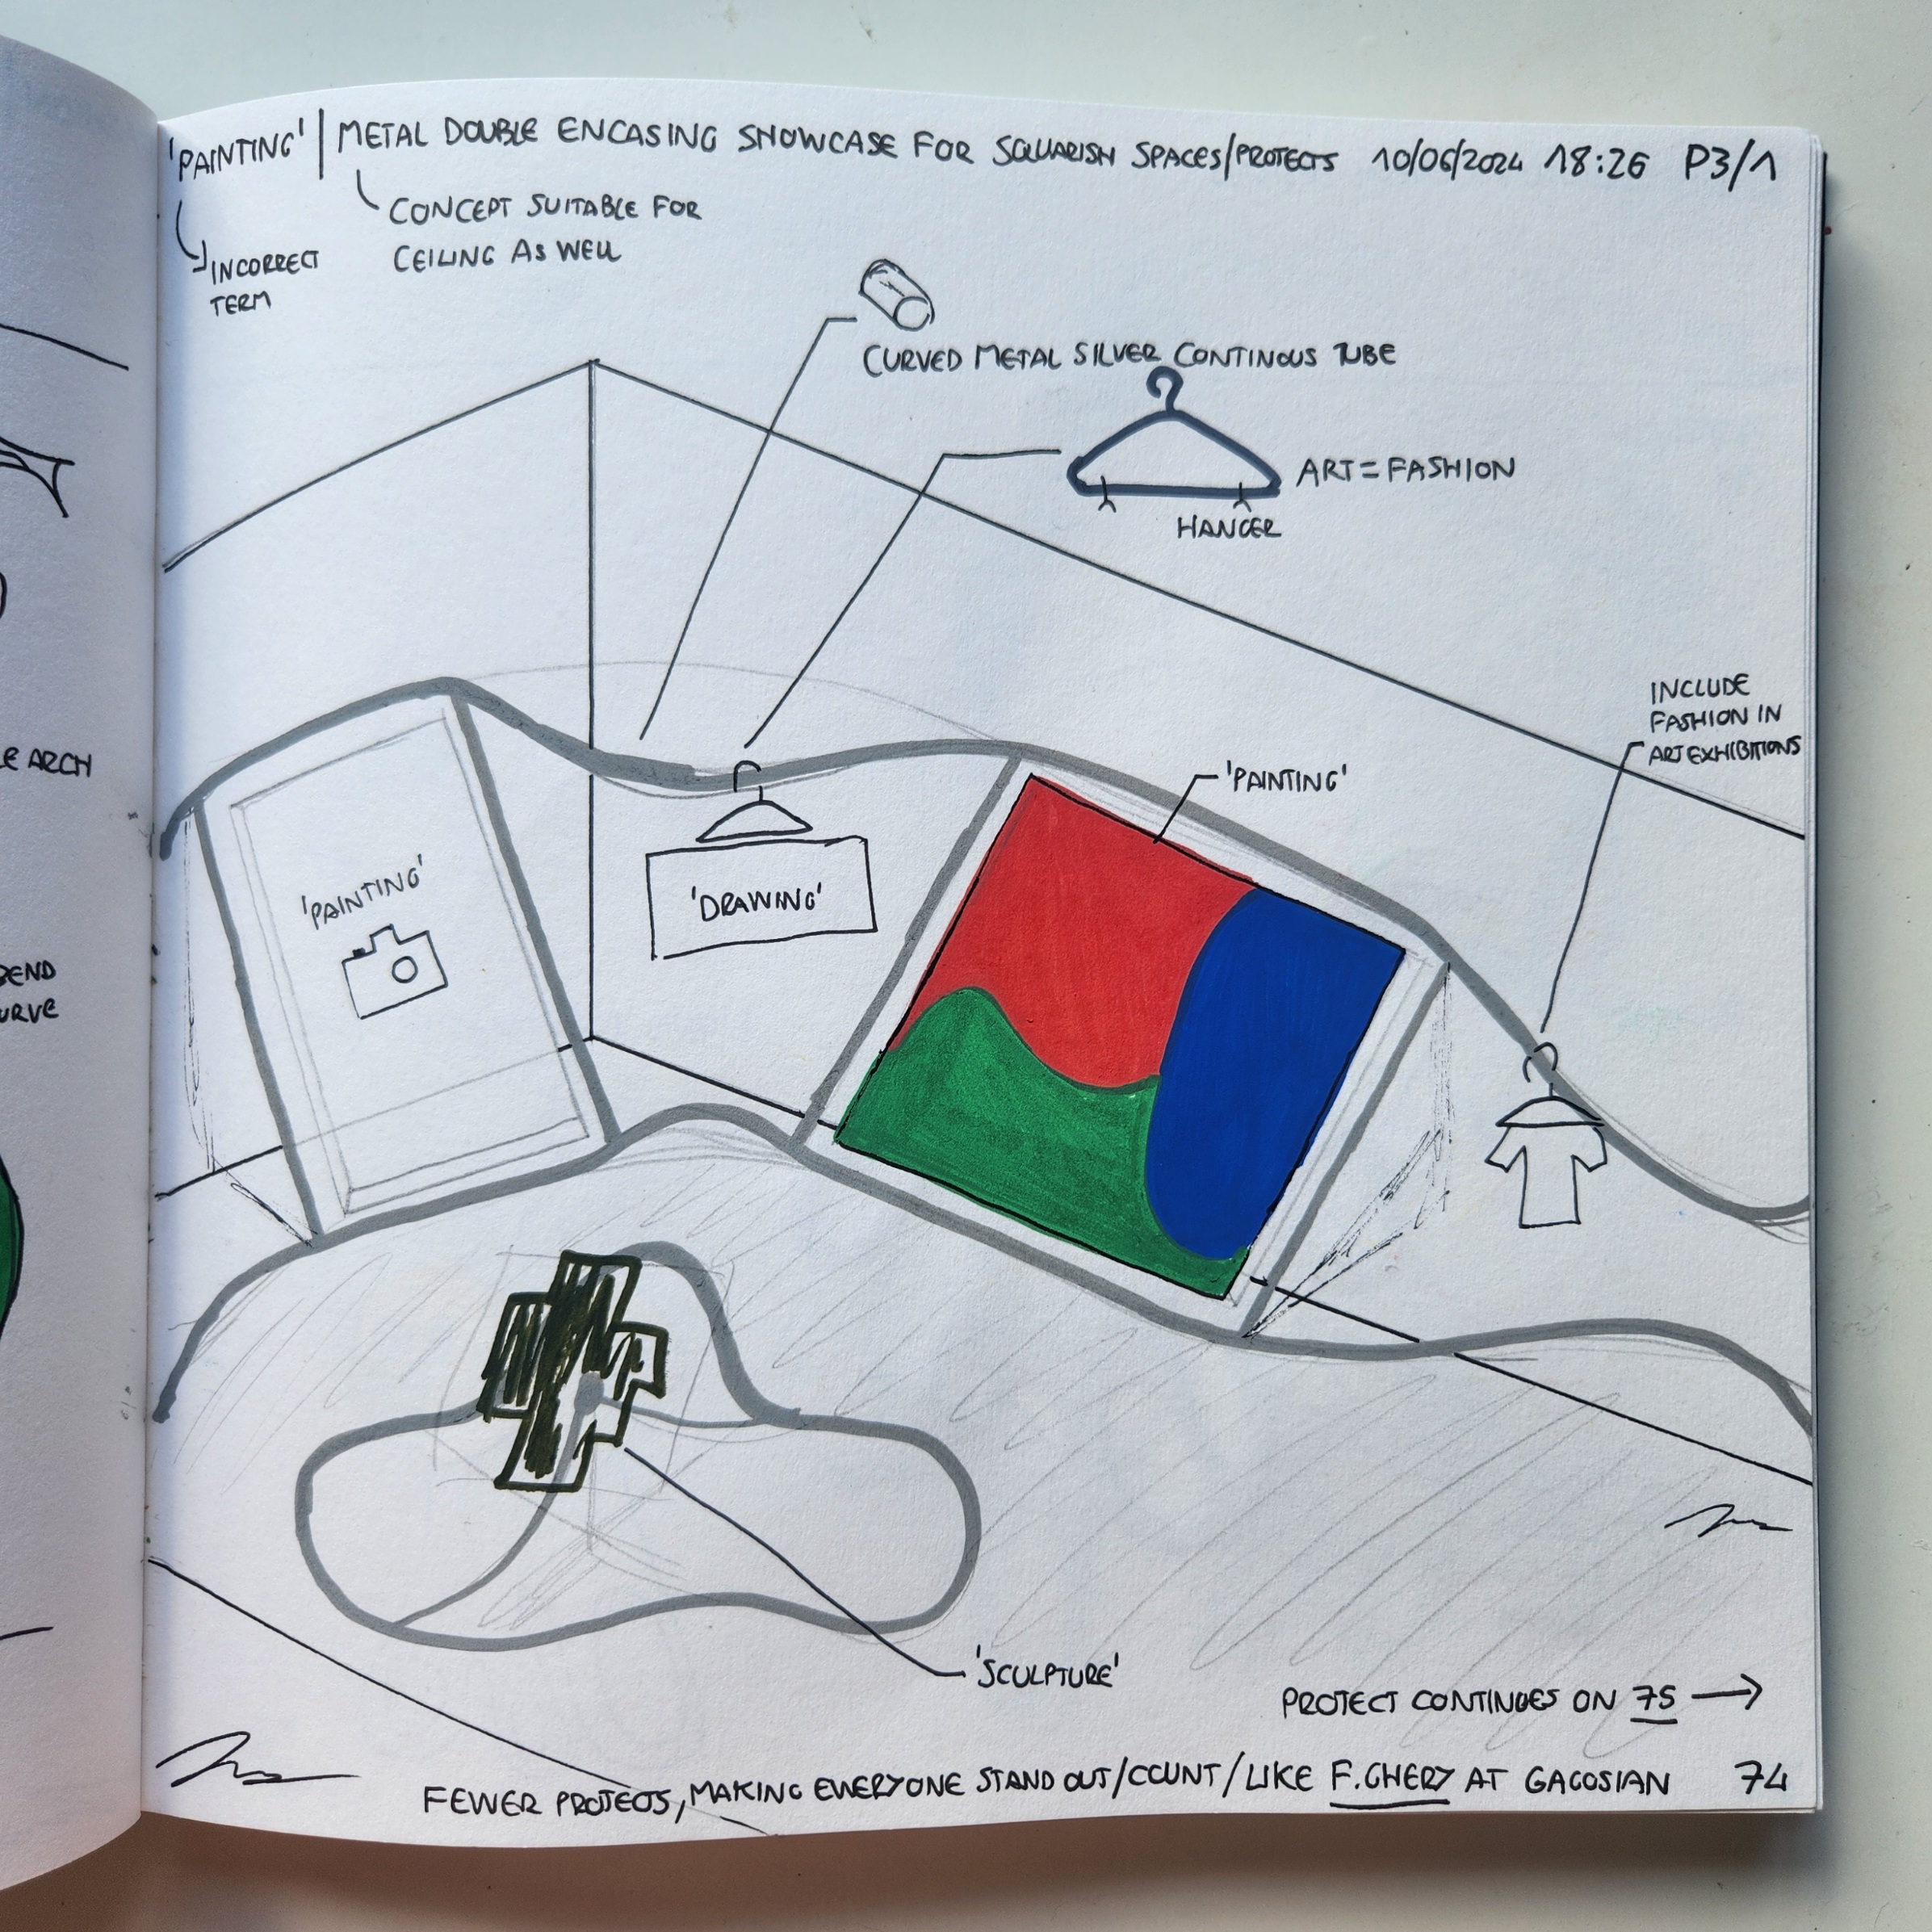 'PAINTING' | METAL DOUBLE ENCASING SHOWCASE FOR SQUARISH SPACES/PROTECTS 10/06/2024 18:26 P3/1
INCORRECT
TERM
CONCEPT SUITABLE FOR
CEILING AS WELL
CURVED METAL SILVER CONTINOUS TUBE
ART = FASHION
HANGER
INCLUDE
FASHION IN
ART EXHIBITIONS
'PAINTING'
'PAINTING'
'DRAWING'
ARCH
BEND
CURVE
'SCULPTURE'
PROTECT CONTINUES ON 75 →
FEWER PROTECTS, MAKING EVERYONE STAND OUT/COUNT/LIKE F.GHERY AT GAGOSIAN 74